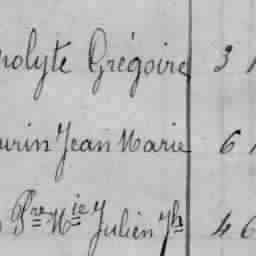 polyte Grégoire 3
urin Jean Marie 6
Pre Mie Julien Jh 46